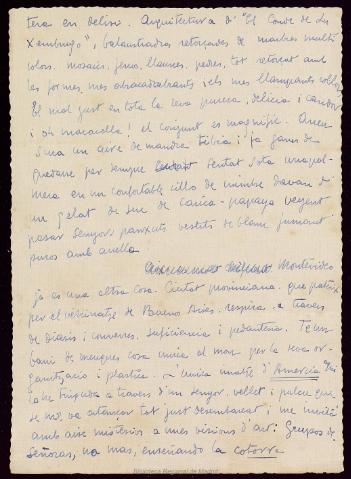 tera en deliri. Arquitectura d' "El Conde de Lu
xemburgo", balaustrades retorçades de marbres multi
colors. mosaics, ferro, llaunes, pedres, tot retorçat amb
les formes mes esbracadabrants i els mes llampants colors
El mal gust en tota la seva puresa, delicia i candor
i oh maravella! el conjunt es magnific. Arreu
s'una un aire de mandra tibia i fa ganes de
quedarse per sempre sentat sota una pal-
mera en un confortable silló de mimbre davan d'
un gelat de suc de carica-papaya vegent
pasar senyors panxuts vestits de blanc fumant
puros amb anella.
Montevideo
ja es una altra cosa. Ciutat provinciana que pateix
per el veinatge de Buenos Aires. respira a traves
de diaris i converses, suficiencia i pedanteria. Tenen
baix de menyes cosa unica el mon per la seva or-
ganització i plastica. L'unica unatge d'America que
la he trapada a traves d'un senyor, vellet i pulcre que
se m va atançar tot just desembarcat i me invità
amb aire misteriós a unes visions d'art: Grupos de
Señoras, no mas, enseñando la cotorra
Biblioteca Regional de Madrid